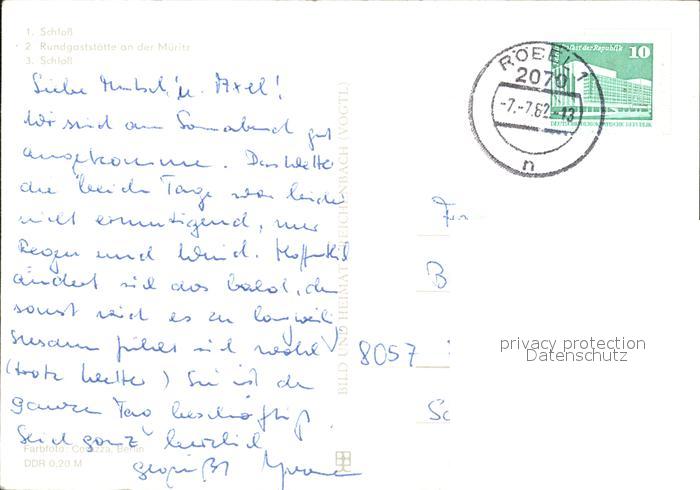 1. Schloß
2 Rundgaststätte an der Müritz
3. Schloß
Liebe Mutsch u. Axel!
Wir sind am Sonnabend gut
angekommen. Das Wetter
die beide Tage war leider
nicht ermutigend, nur
Regen und Wind. Hoffentlich
ändert sich das bald, denn
sonst wird es zu langweilig
Susann fühlt sich wohl
(trotz Wetter) Sie ist den
ganzen Tag beschäftigt.
Seid ganz herzlich
gegrüßt Yvonne
Farbfoto: Berlin
DDR 0,20 M
BILD UND HEIMAT REICHENBACH (VOGTL)
RÖBEL 1
2070
-7.-7.82-13
n
Palast der Republik 10
DEUTSCHE DEMOKRATISCHE REPUBLIK
B
8057
privacy protection
Datenschutz